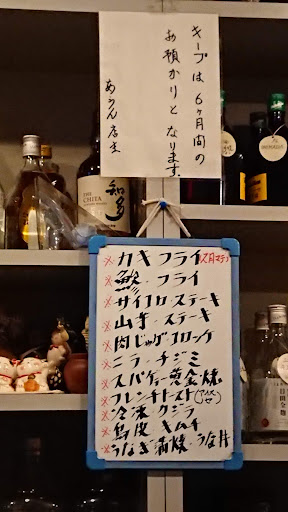 キープは6ヶ月間の
お預かりとなります。
あらん店主
THE
CHITA
知多
※カキフライ
※フライ
※サイコロ・ステーキ
※山芋・ステーキ
※肉じゃがコロッケ
※ニラ・チヂミ
※スパゲティ黄金焼
※フレンチトースト(アイスのせ)
※冷凍クジラ
※鳥皮キムチ
※うなぎ酒焼・うな丼